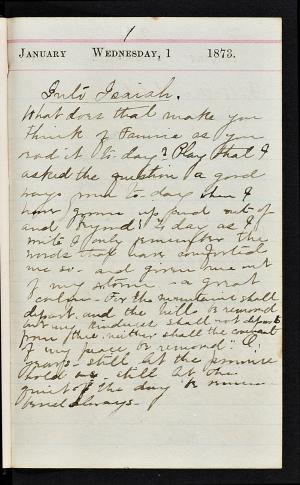 1
JANUARY WEDNESDAY, 1 1873.
Isaiah.
What does that make you
think of Fannie as you
read it to day? Play that I
asked the question a good
ways from to day when I
have gone up and out of
and beyond to day as I
write I only remember the
words that have comforted
me so - and given me out
of my storm - a great
calm - For the mountains shall
depart and the hills be removed
but my kindness shall not depart
from thee, neither shall the covenant
of my peace be removed" O,
still let the promise
hold me - still let the
quiet of the day be
always.